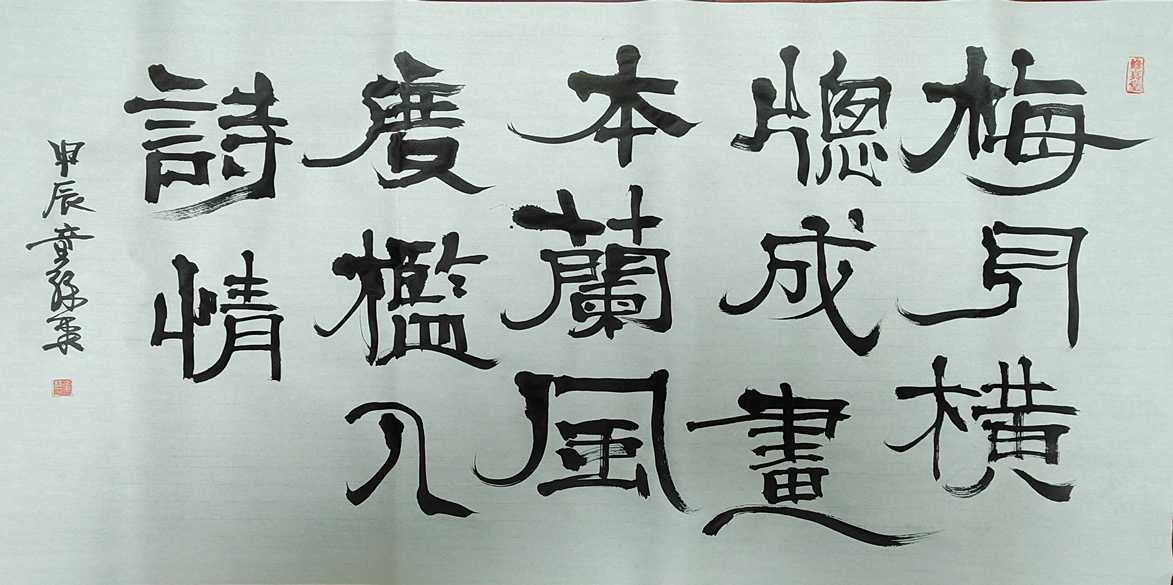 梅月橫
牕成畫
本蘭風
度檻入
詩情
甲辰童